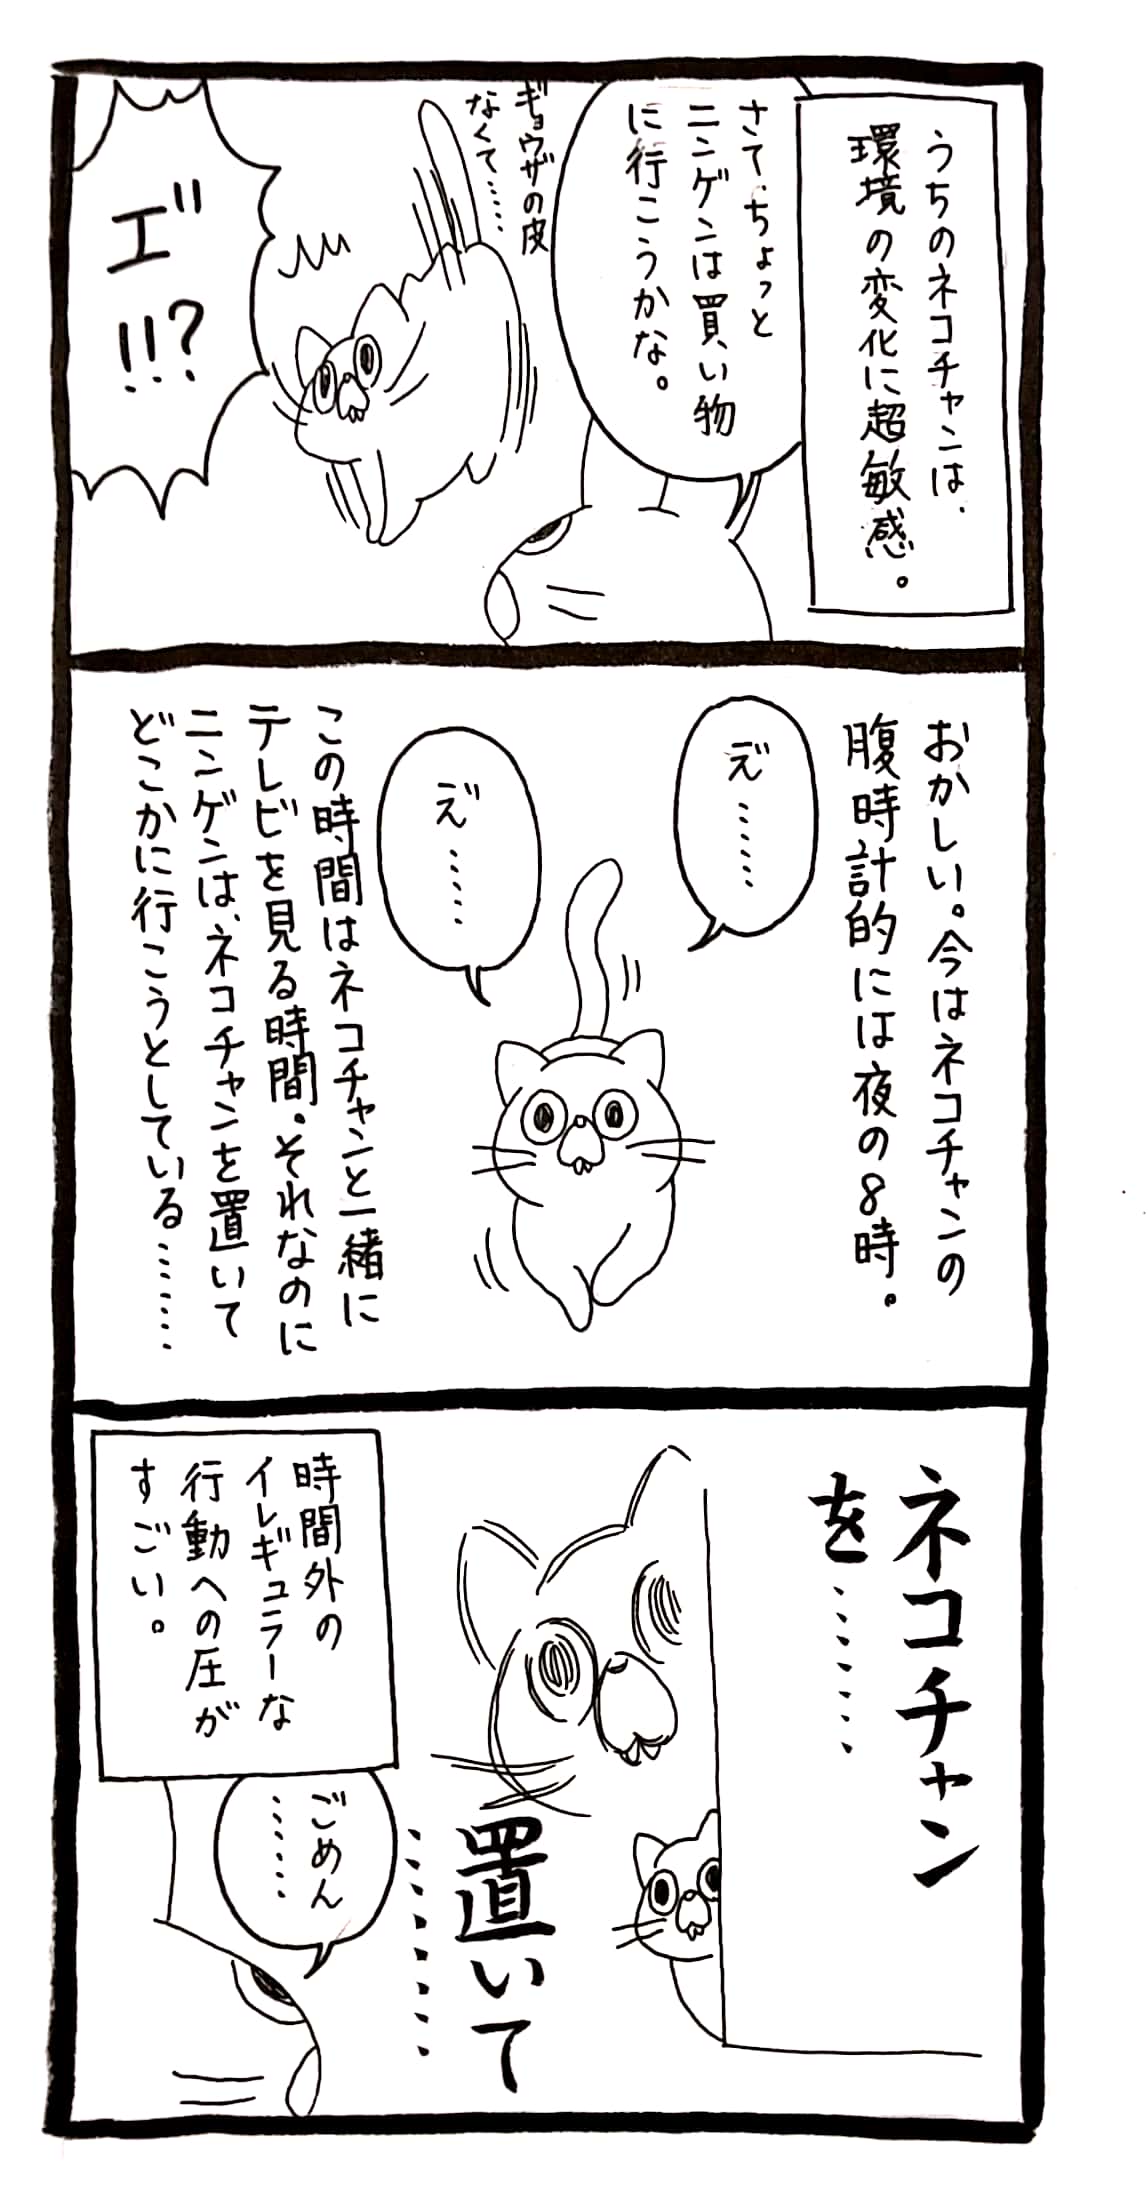 うちのネコチャンは、
環境の変化に超敏感。
さて、ちょっと
ニンゲンは買い物
に行こうかな。
ギョウザの皮
なくて……
エ゛
!!?
おかしい。今はネコチャンの
腹時計的には夜の8時。
え゛……
え゛……
この時間はネコチャンと一緒に
テレビを見る時間。それなのに
ニンゲンは、ネコチャンを置いて
どこかに行こうとしている……
ネコチャン
を……
置いて
……
時間外の
イレギュラーな
行動への圧が
すごい。
ごめん
……